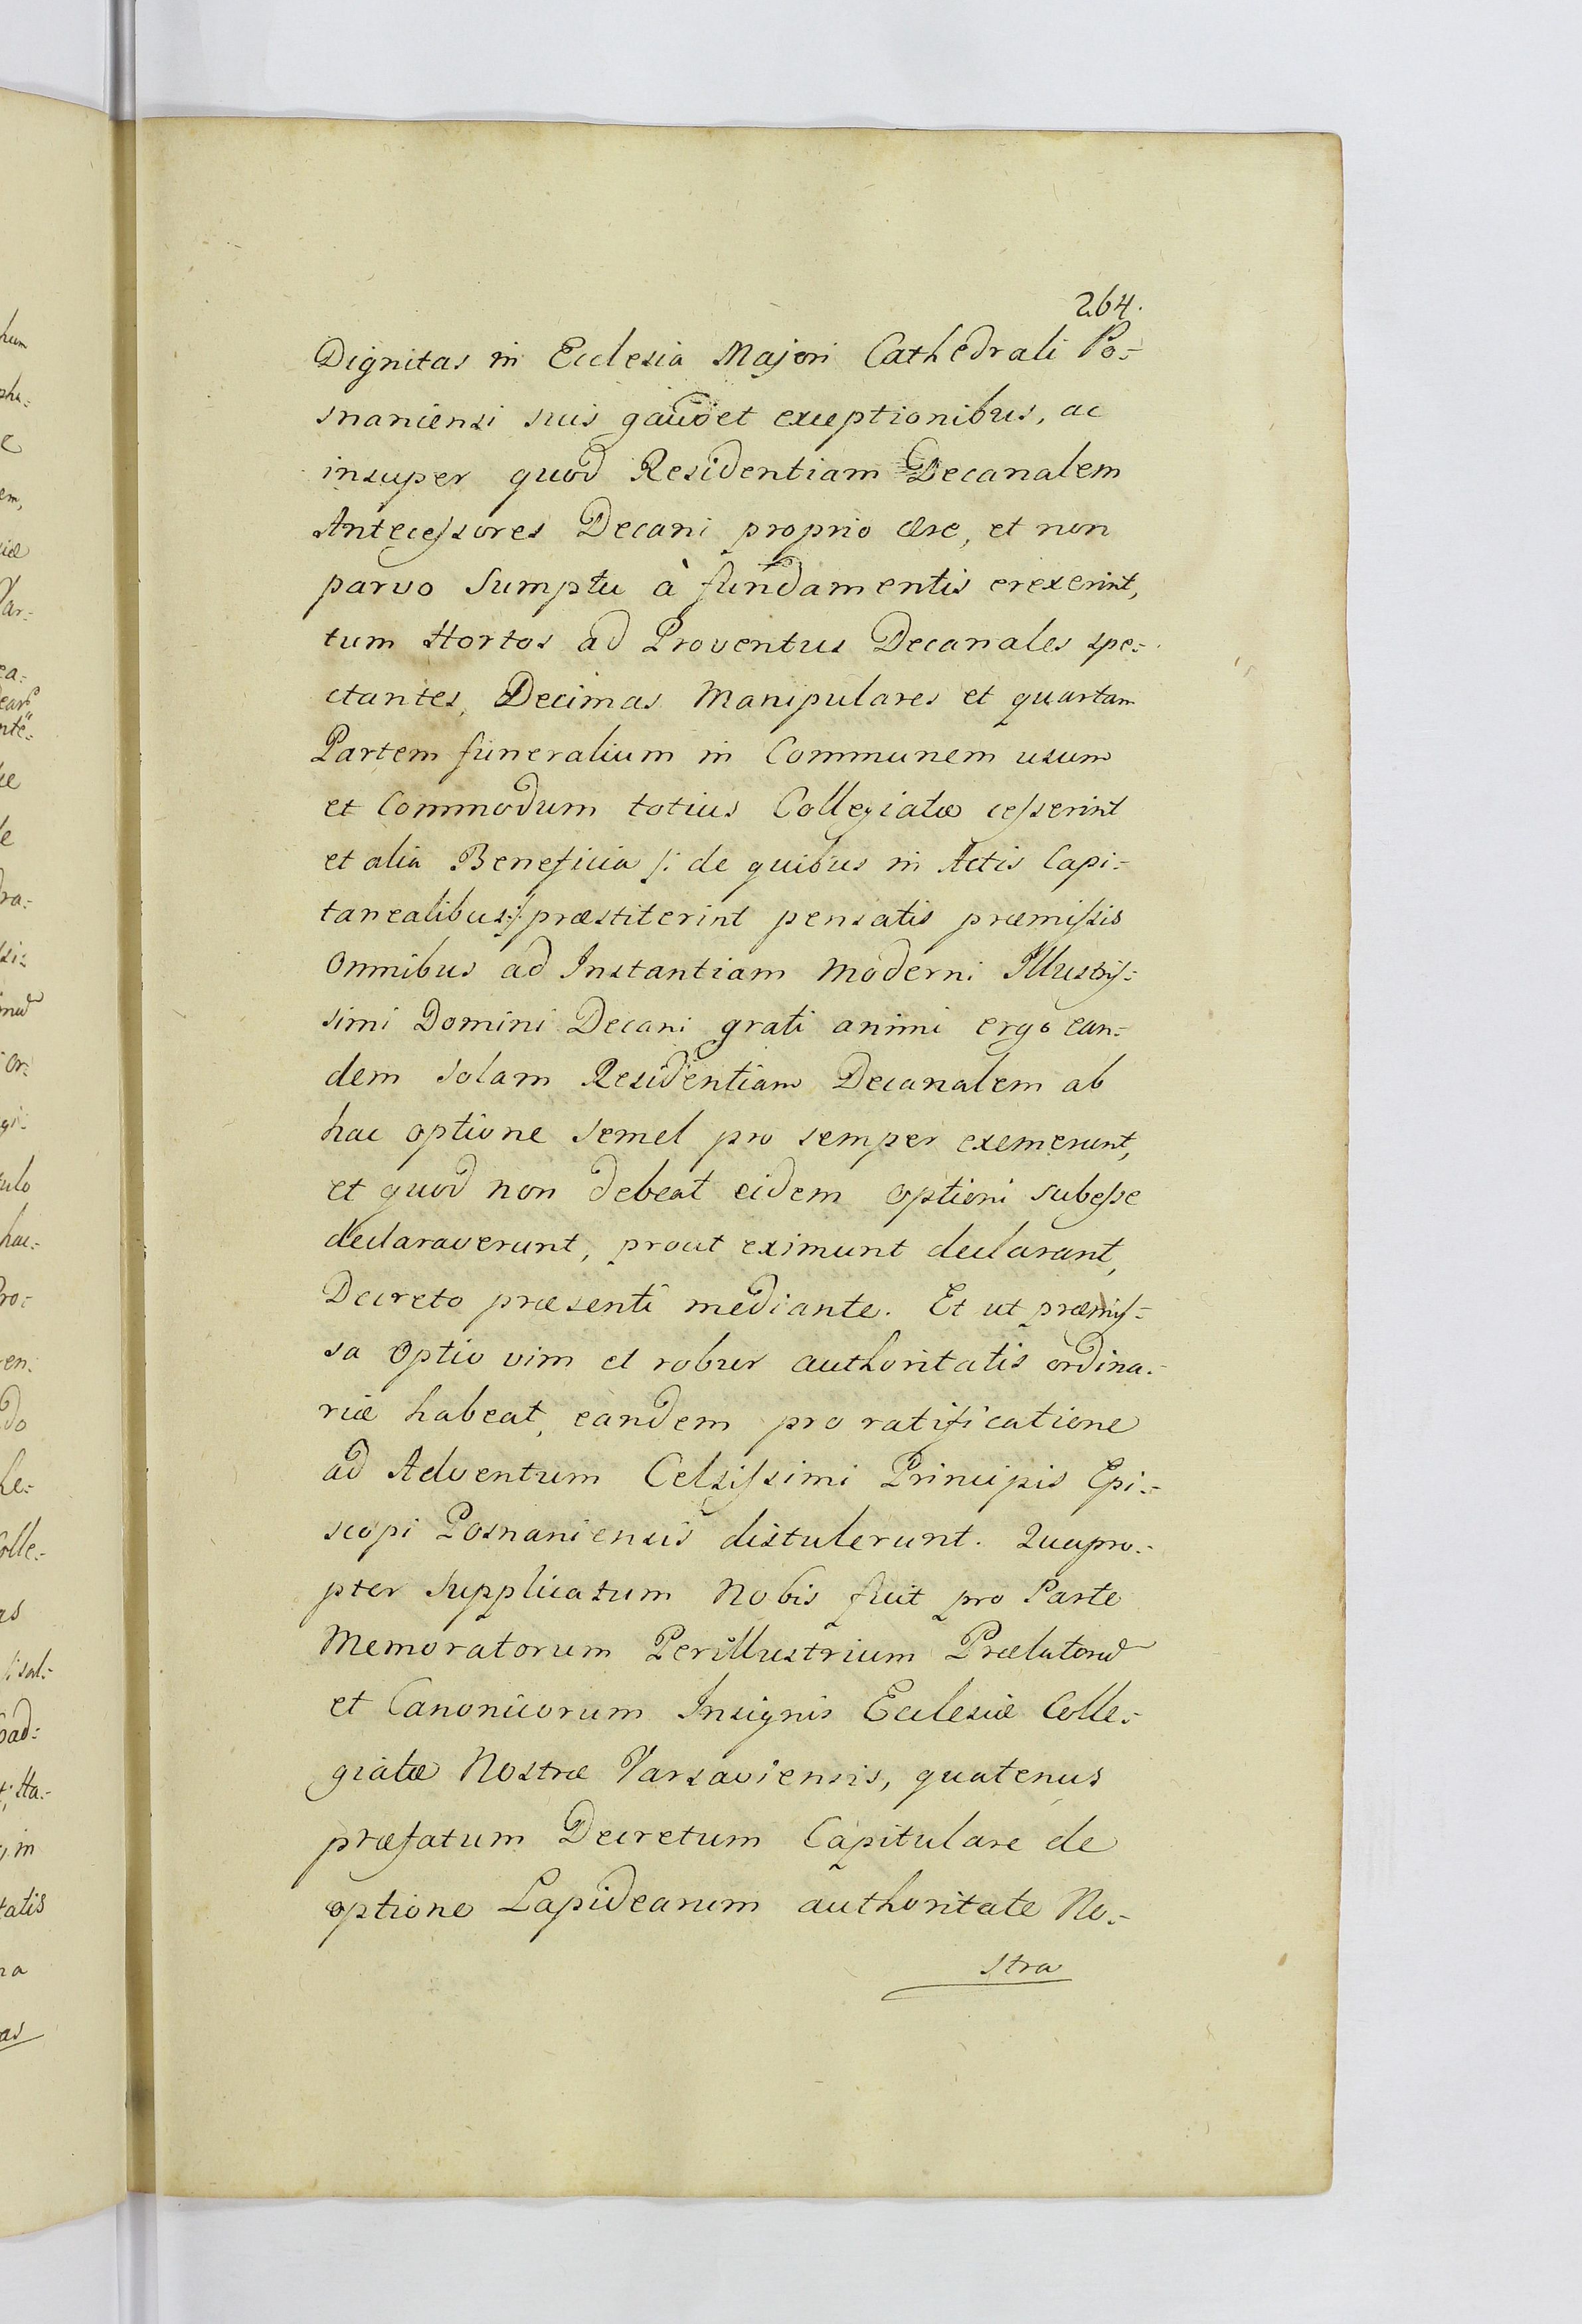 264.
Dignitas in Ecclesia Majori Cathedrali Po:-
snaniensi suis gaudet exceptionibus, ac
insuper quod Residentiam Decanalem
Antecessores Decani proprio ære, et non
parvo Sumptu à fundamentis erexerint,
tum Hortos ad Proventus Decanales spe:-
ctantes, Decimas Manipulares et quartam
Partem funeralium in Communem usum
et Commodum totius Collegiatæ cesserint
et alia Beneficia /: de quibus in Actis Capi:-
tanealibus :/ præstiterint pensatis præmissis
Omnibus ad Instantiam Moderni Illustris:-
simi Domini Decani grati animi ergo ean:-
dem solam Residentiam Decanalem ab
hac optione semel pro semper exemerunt,
et quod non debeat eidem optioni subesse
declaraverunt, prout eximunt declarant,
Decreto præsenti mediante. Et ut præmis:-
sa Optio vim et robur authoritatis ordina:-
riæ habeat, eandem pro ratificatione
ad Adventum Celsissimi Principis Epi:-
scopi Posnaniensis distulerunt. Quapro:-
pter Supplicatum Nobis fuit pro Parte
Memoratorum Perillustrium Prælatorum
et Canonicorum Insignis Ecclesiæ Colle:-
giatæ Nostræ Varsaviensis, quatenus
præfatum Decretum Capitulare de
optione Lapidearum authoritate No:-
stra